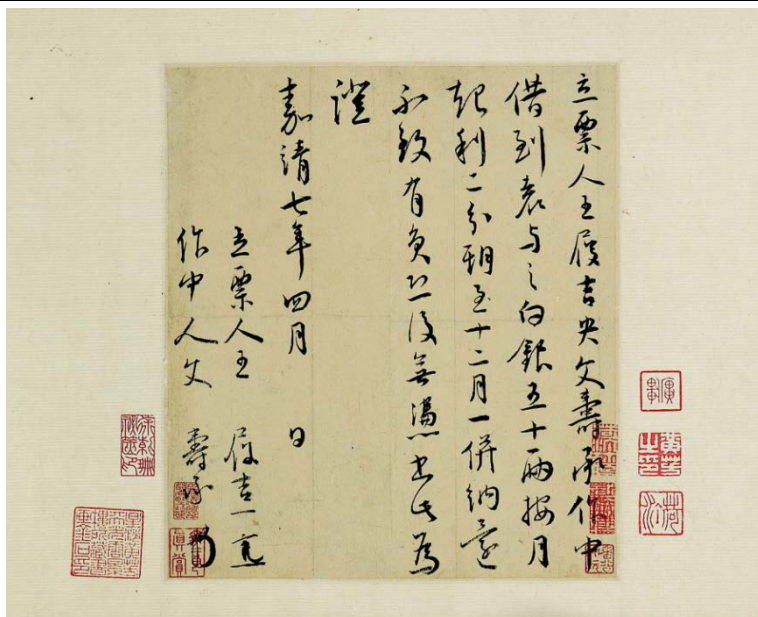 立票人王履吉央文壽承作中
借到袁與之白銀五十兩按月
起利二分期至十二月一併納還
不致有負恐後無憑書此為
證
嘉靖七年四月 日
立票人王 履吉
作中人文 壽承